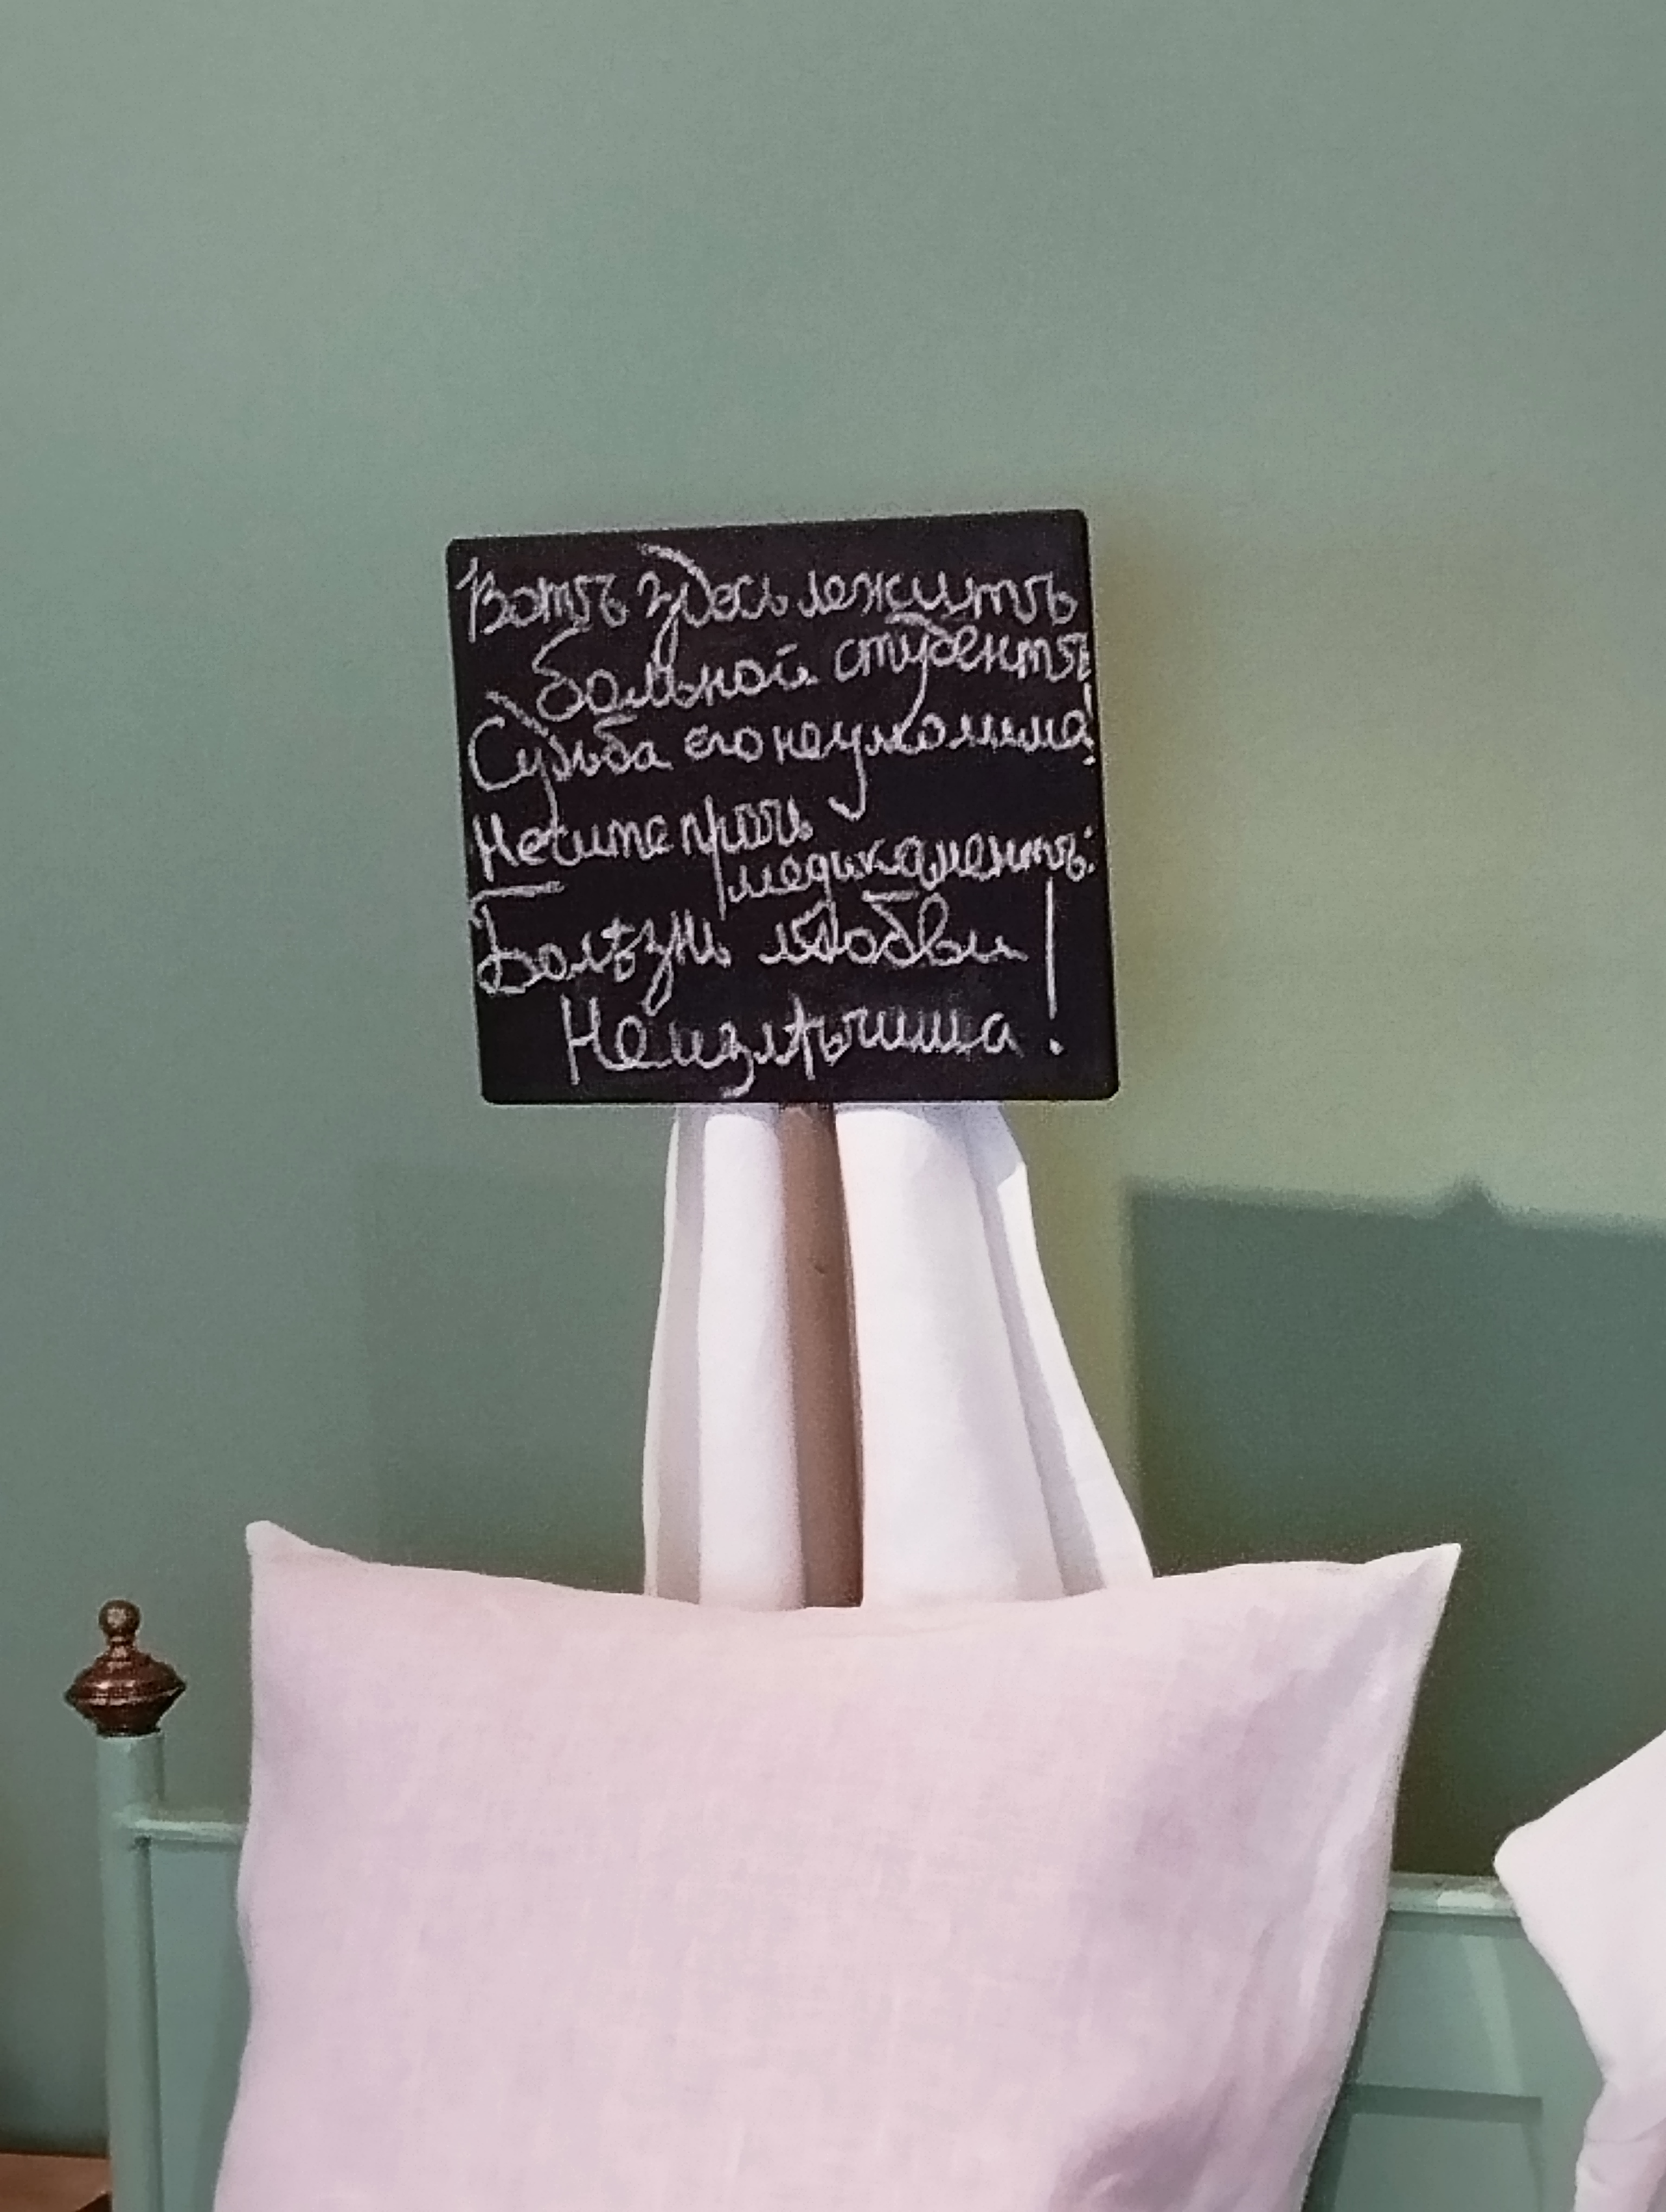 Вотъ здесь лежитъ
больной студентъ
Судьба его неумолима!
Несите прочь
медикаментъ:
Болѣзнь любви
Неизлѣчима!